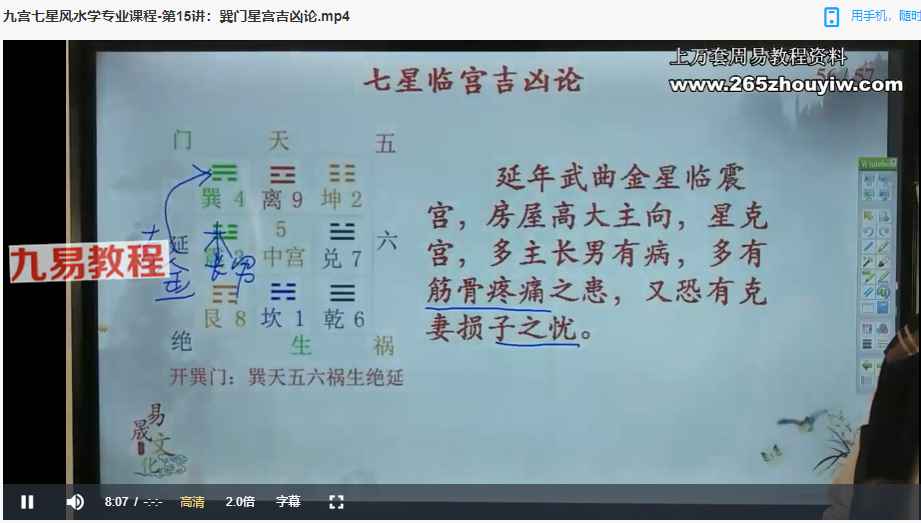 九宫七星风水学专业课程-第15讲：巽门星宫吉凶论.mp4
用手机，随时
上万套周易教程资料
www.265zhouyiw.com
56 / 57
七星临宫吉凶论
门 天 五
巽 4 离 9 坤 2
延 5 六
中宫 兑 7
木
金 长男
艮 8 坎 1 乾 6
绝 生 祸
开巽门：巽天五六祸生绝延
延年武曲金星临震
宫，房屋高大主向，星克
宫，多主长男有病，多有
筋骨疼痛之患，又恐有克
妻损子之忧。
九易教程
易
晟
文
化
8:07 / -:-:-
高清
2.0倍
字幕